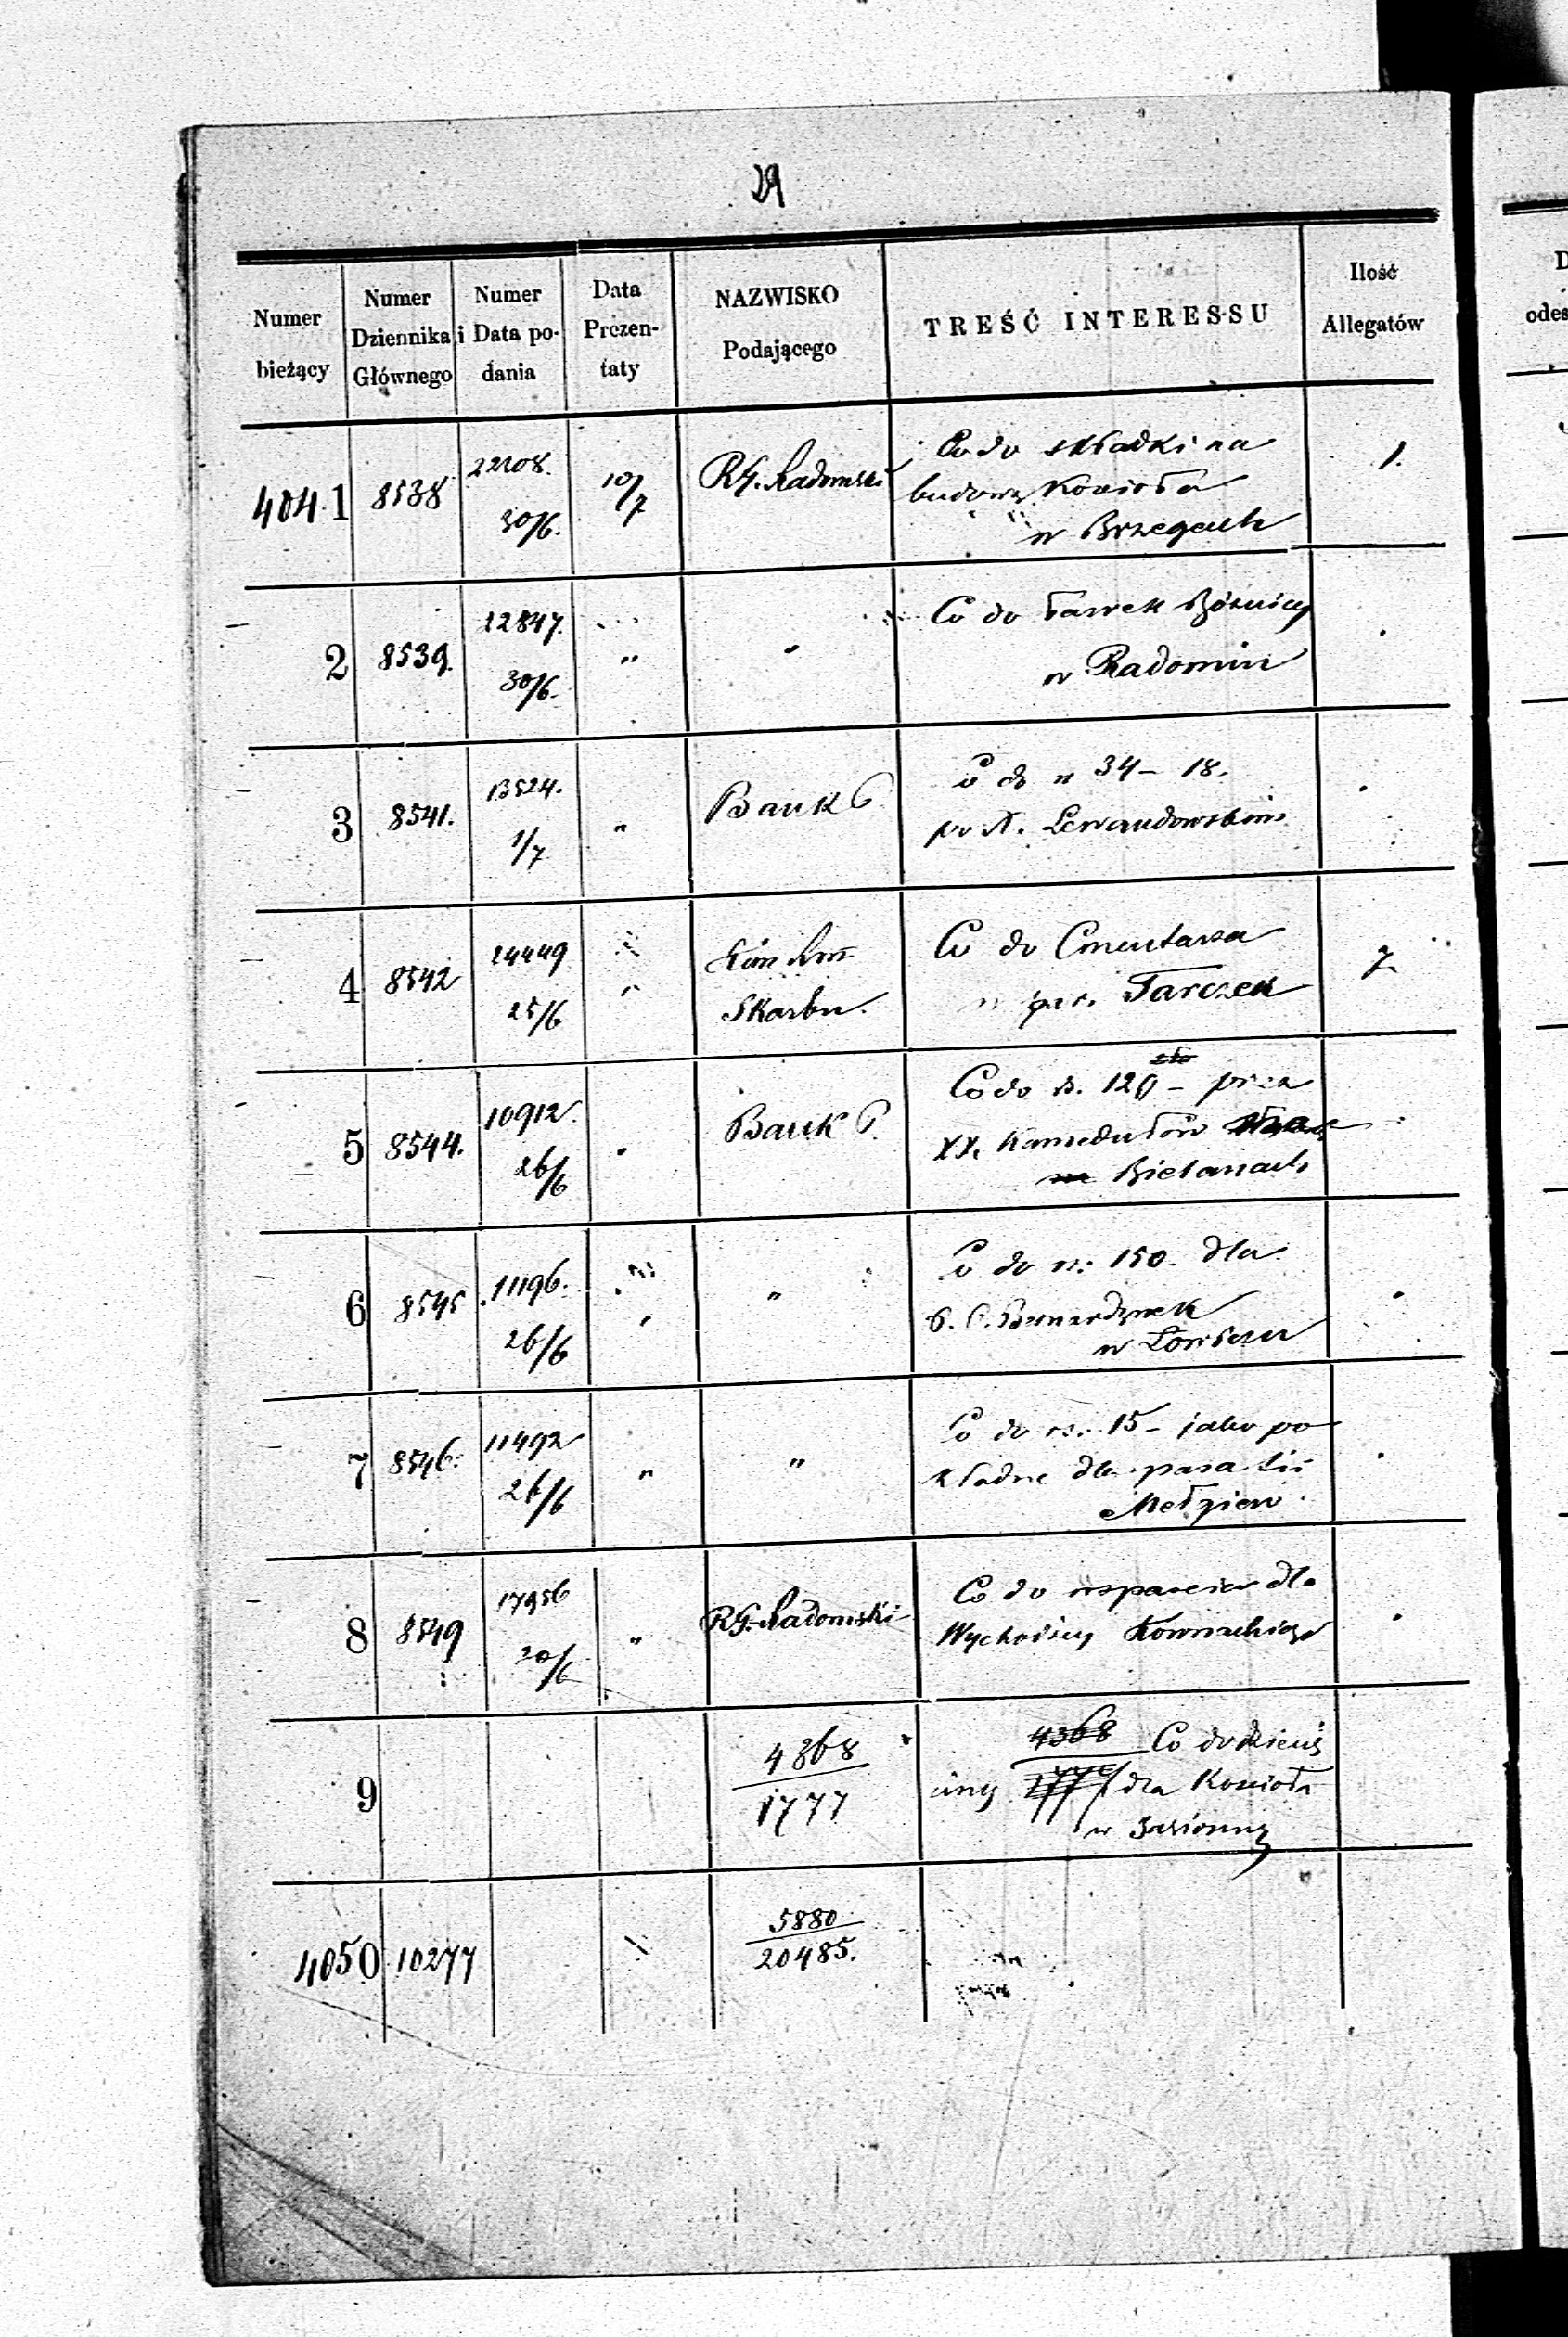 29
Numer bieżący | Numer Dziennika Głównego | Numer i Data podania | Data Prezentaty | NAZWISKO Podającego | TREŚĆ INTERESSU | Ilość Allegatów
4041 | 8538 | 22108. 30/6. | 10/7 | RG. Radomski | Co do składki na
budowę Kościoła
w Brzegach | 1.
2 | 8539. | 12847. 30/6. | " | " | Co do ławek Bóżnicy
w Radomiu
3 | 8541. | 13524. 1/7 | " | Bank P. | Co do rs 34 - 18.
po X. Lewandowskim
4 | 8542 | 24449 25/6 | " | Kom Rzą
Skarbu. | Co do Cmentarza
par. Tarczek | 7.
5 | 8544. | 10912. 26/6 | " | Bank P. | Co do rs. 120 - przez
XX. Kamedułów
Bielanach
6 | 8545 | 11196. 26/6 | " | " | Co do rs: 150. dla
P. P. Bernardynek
w Łowiczu
7 | 8546. | 11492 26/6 | " | " | Co do rs. 15 - jako po
kładne dla parafii
Mełgiew
8 | 8549 | 17956 20/6 | " | RG. Radomski | Co do wsparcia dla
Wychodźcy Kownackiego
9 | 4368
1777 | 4368 Co do dzieus
ciny dla Kościoła
w Jasionnej
4050 | 10277 | 5880
20485.
D
odes